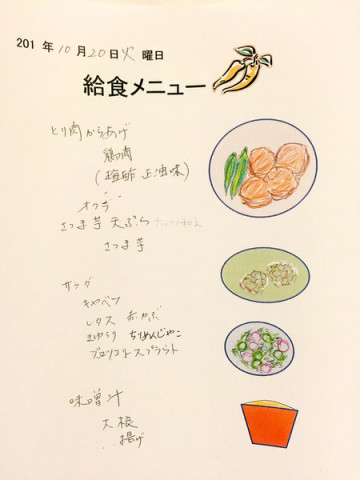 201 年 10月 20日 火 曜日
給食メニュー
とり肉からあげ
鶏肉
(梅酢 正油味)
オクラ
さつま芋 天ぷら
さつま芋
サラダ
キャベツ
レタス 赤かぶ
きゅうり ちりめんじゃこ
ブロッコリースプラウト
味噌汁
大根
揚げ